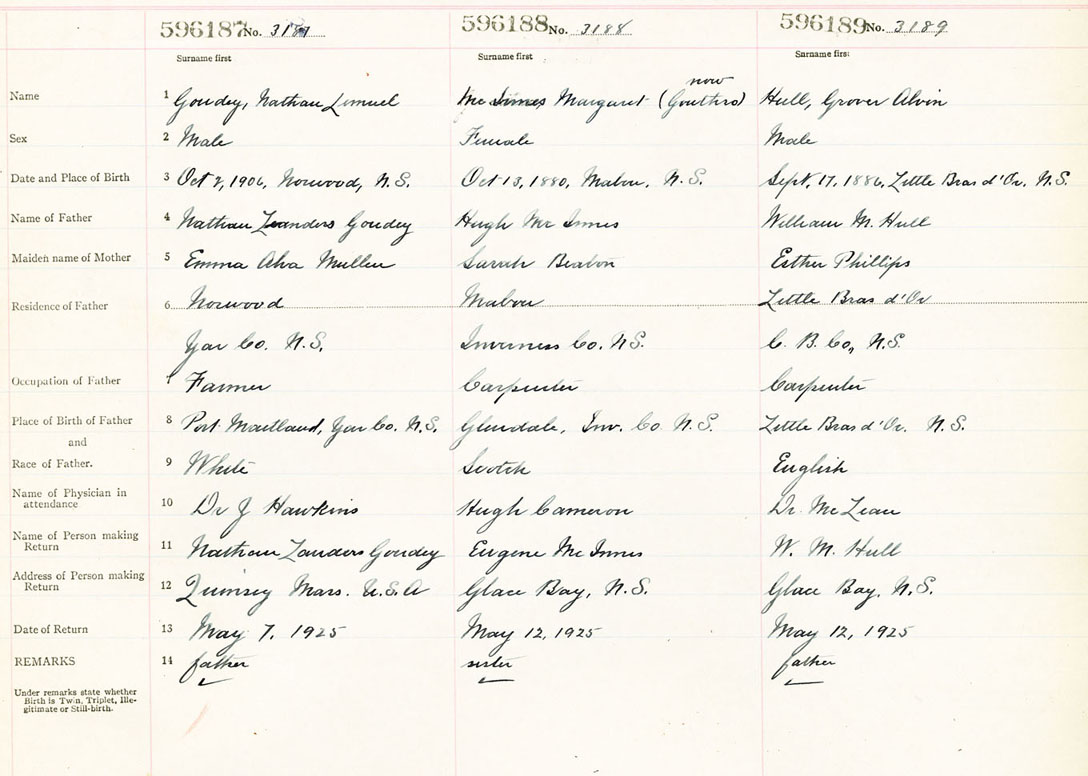 596187 No. 3187 596188 No. 3188 596189 No. 3189
Surname first Surname first Surname first
now
Name 1 Goudey, Nathan Lemuel Mc Innes Margaret (Gouthro) Hull, Grover Alvin
Sex 2 Male Female Male
Date and Place of Birth 3 Oct 2, 1906, Norwood, N.S. Oct 13, 1880, Mabou, N.S. Sept, 17, 1886, Little Bras d'Or, N.S.
Name of Father 4 Nathan Leanders Goudey Hugh Mc Innes William M. Hull
Maiden name of Mother 5 Emma Alva Mullen Sarah Beaton Esther Phillips
Residence of Father 6 Norwood Mabou Little Bras d'Or
Yar Co. N.S. Inverness Co. N.S. C. B. Co, N.S.
Occupation of Father 7 Farmer Carpenter Carpenter
Place of Birth of Father 8 Port Maitland, Yar Co. N.S. Glendale, Inv. Co N.S. Little Bras d'Or. N.S.
and
Race of Father. 9 White Scotch English
Name of Physician in
attendance 10 Dr J Hawkins Hugh Cameron Dr. McLean
Name of Person making
Return 11 Nathan Landers Goudey Eugene Mc Innes W. M. Hull
Address of Person making
Return 12 Quinsey Mars. U.S.A Glace Bay, N.S. Glace Bay, N.S.
Date of Return 13 May 7, 1925 May 12, 1925 May 12, 1925
REMARKS 14 father sister father
Under remarks state whether
Birth is Twin, Triplet, Ille-
gitimate or Still-birth.